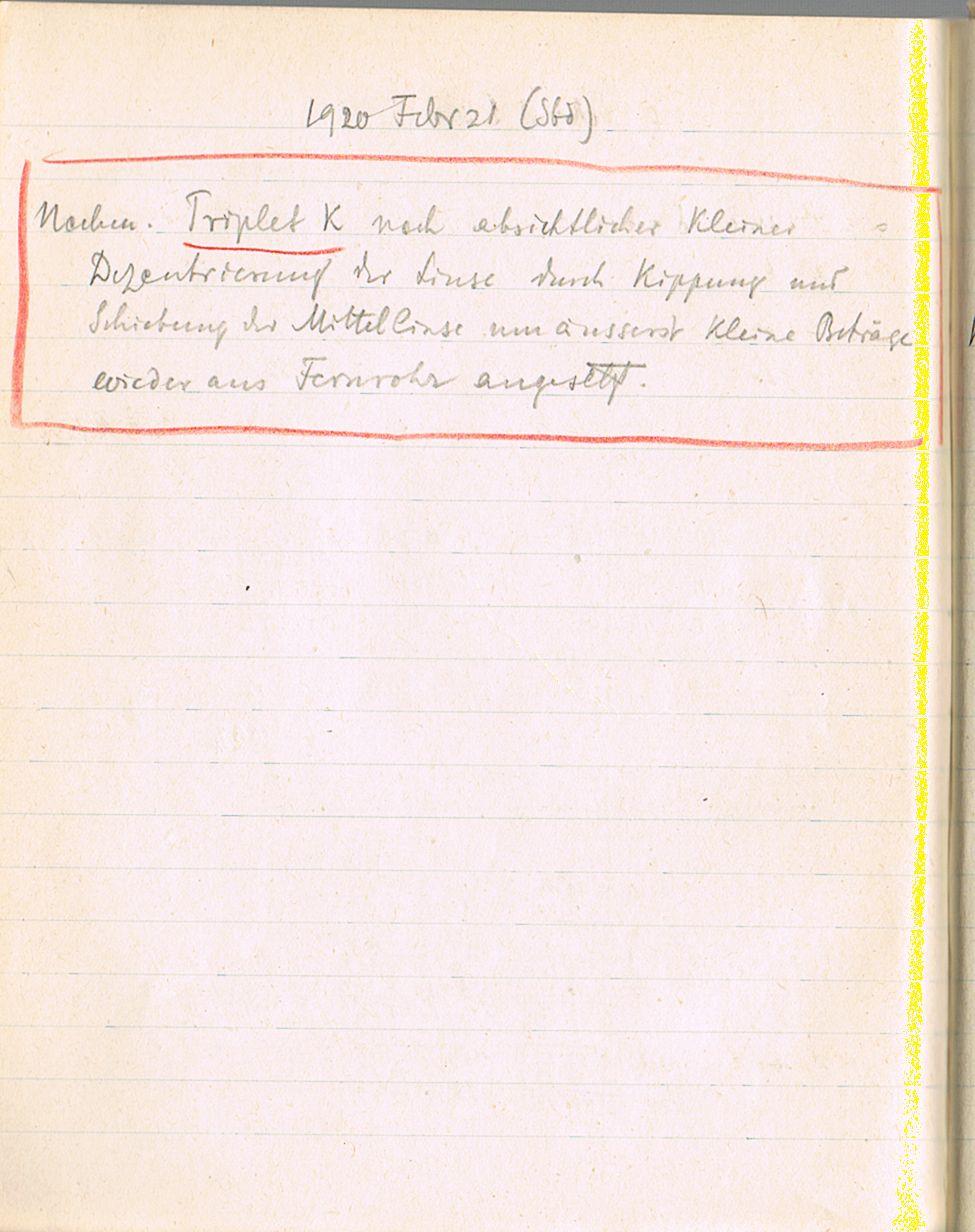 1920 Febr 21 (Sbd)
Nachm. Triplet K nach absichtlicher kleiner
Dezentrierung der Linse durch Kippung und
Schiebung der Mittellinse um äusserst kleine Beträge
wieder ans Fernrohr angesetzt.